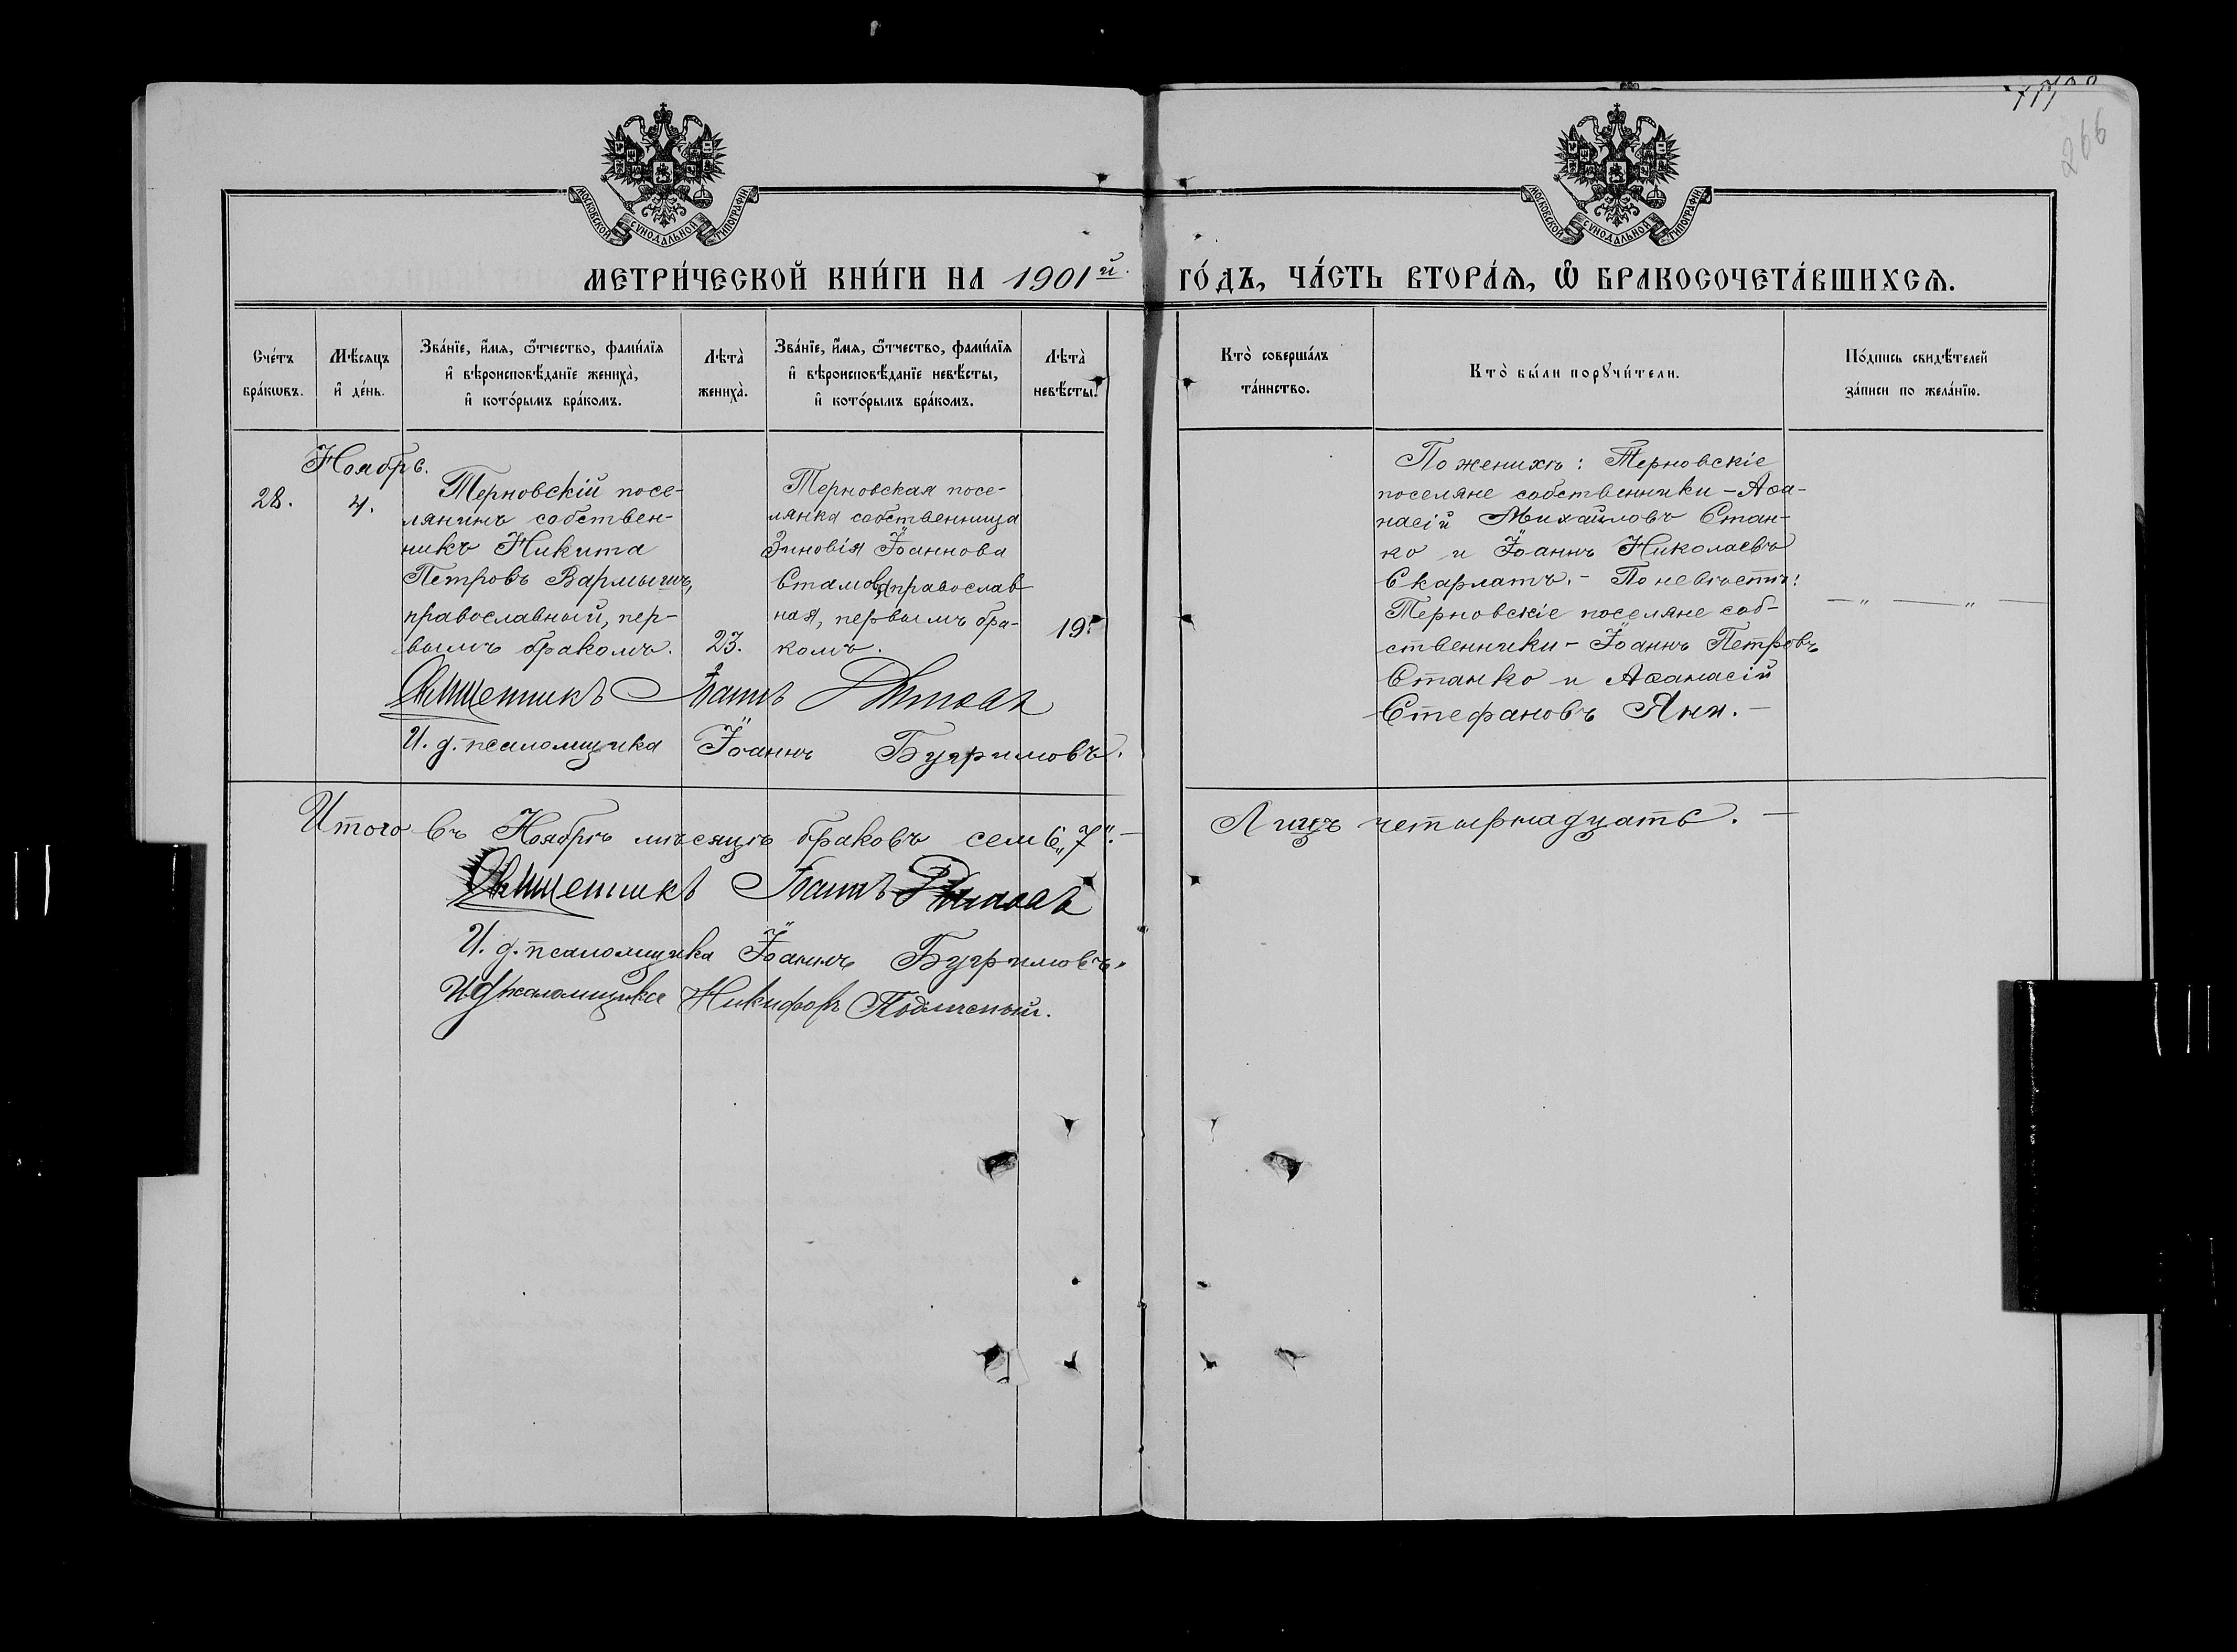 266
МОСКОВСКОЙ СѴНОДАЛЬНОЙ ТИПОГРАФІИ
МОСКОВСКОЙ СѴНОДАЛЬНОЙ ТИПОГРАФІИ
МЕТРИ́ЧЕСКОЙ КНИ́ГИ НА 1901й. ГО́ДЪ, ЧА́СТЬ ВТОРА́Ѧ, Ѡ҆ БРАКОСОЧЕТА́ВШИХСѦ.
Сче́тъ бра́кѡвъ.
Мѣ́сяцъ и҆ де́нь.
Зва́нїе, и҆́мя, ѻ҆́тчество, фами́лїя
и҆ вѣроисповѣ́данїе жениха̀,
и҆ кото́рымъ бра́комъ.
Лѣта̀ жениха̀.
Зва́нїе, и҆́мя, ѻ҆́тчество, фами́лїя
и҆ вѣроисповѣ́данїе невѣ́сты,
и҆ кото́рымъ бра́комъ.
Лѣта̀ невѣ́сты.
Кто̀ соверша́лъ та́инство.
Кто̀ бы́ли порꙋчи́тели.
По́дпись свидѣ́телей за́писи по жела́нїю.
Ноябрь.
28.
4.
Терновскій посе-
лянинъ собствен-
никъ Никита
Петровъ Вармышъ,
православный, пер-
вымъ бракомъ.
23.
Терновская посе-
лянка собственница
Зиновія Іоаннова
Стамова, православ
ная, первымъ бра-
комъ.
19.
По женихѣ: Терновскіе
поселяне собственники - Аѳа-
насій Михайловъ Стан-
ко и Іоаннъ Николаевъ
Скарлатъ. - По невѣстѣ:
Терновскіе поселяне соб-
ственники - Іоаннъ Петровъ
Станко и Аѳанасій
Стефановъ Яни. -
— „ — „ —
Священникъ Іоаннъ
И. д. псаломщика Іоаннъ Бугримовъ.
Итого въ Ноябрѣ мѣсяцѣ браковъ семь „7“. -
Лицъ четырнадцать. -
Священникъ Іоаннъ
И. д. псаломщика Іоаннъ Бугримовъ.
И д псаломщика Никифоръ